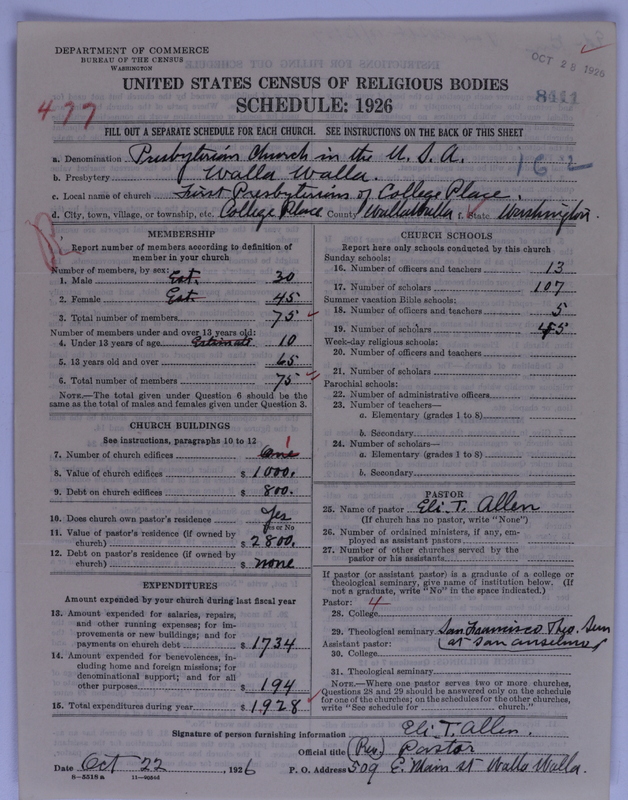 DEPARTMENT OF COMMERCE
BUREAU OF THE CENSUS
WASHINGTON
OCT 28 1926
8411
UNITED STATES CENSUS OF RELIGIOUS BODIES
SCHEDULE: 1926
477
FILL OUT A SEPARATE SCHEDULE FOR EACH CHURCH. SEE INSTRUCTIONS ON THE BACK OF THIS SHEET
a. Denomination Presbyterian Church in the U. S. A.
16 2
b. Presbytery Walla Walla.
c. Local name of church First Presbyterians of College Place.
d. City, town, village, or township, etc. College Place County Walla Walla f. State Washington.
MEMBERSHIP
Report number of members according to definition of
member in your church
Number of members, by sex:
1. Male Est. 30
2. Female Est. 45
3. Total number of members 75
Number of members under and over 13 years old:
4. Under 13 years of age Estimate 10
5. 13 years old and over 65
6. Total number of members 75
NOTE.—The total given under Question 6 should be the
same as the total of males and females given under Question 3.
CHURCH BUILDINGS
See instructions, paragraphs 10 to 12
7. Number of church edifices one 1
8. Value of church edifices $ 1000.
9. Debt on church edifices $ 800.
10. Does church own pastor's residence Yes
Yes or No
11. Value of pastor's residence (if owned by
church) $ 2800.
12. Debt on pastor's residence (if owned by
church) $ none
EXPENDITURES
Amount expended by your church during last fiscal year
13. Amount expended for salaries, repairs,
and other running expenses; for im-
provements or new buildings; and for
payments on church debt $ 1734
14. Amount expended for benevolences, in-
cluding home and foreign missions; for
denominational support; and for all
other purposes $ 194
15. Total expenditures during year $ 1928
CHURCH SCHOOLS
Report here only schools conducted by this church
Sunday schools:
16. Number of officers and teachers 13
17. Number of scholars 107
Summer vacation Bible schools:
18. Number of officers and teachers 5
19. Number of scholars 45
Week-day religious schools:
20. Number of officers and teachers
21. Number of scholars
Parochial schools:
22. Number of administrative officers
23. Number of teachers—
a. Elementary (grades 1 to 8)
b. Secondary
24. Number of scholars—
a. Elementary (grades 1 to 8)
b. Secondary
PASTOR
25. Name of pastor Eli. T. Allen
(If church has no pastor, write "None")
26. Number of ordained ministers, if any, em-
ployed as assistant pastors
27. Number of other churches served by the
pastor or his assistants
If pastor (or assistant pastor) is a graduate of a college or
theological seminary, give name of institution below. (If
not a graduate, write "No" in the space indicated.)
Pastor: 4
28. College
29. Theological seminary San Francisco Theo. Sem
Assistant pastor: (at San Anselmo)
30. College
31. Theological seminary
NOTE.—Where one pastor serves two or more churches,
Questions 28 and 29 should be answered only on the schedule
for one of the churches; on the schedules for the other churches,
write "See schedule for church."
Signature of person furnishing information Eli. T. Allen.
Official title (Rev.) Pastor
Date Oct 22, 1926 P. O. Address 509 E. Main st Walla Walla.
8-5518 a